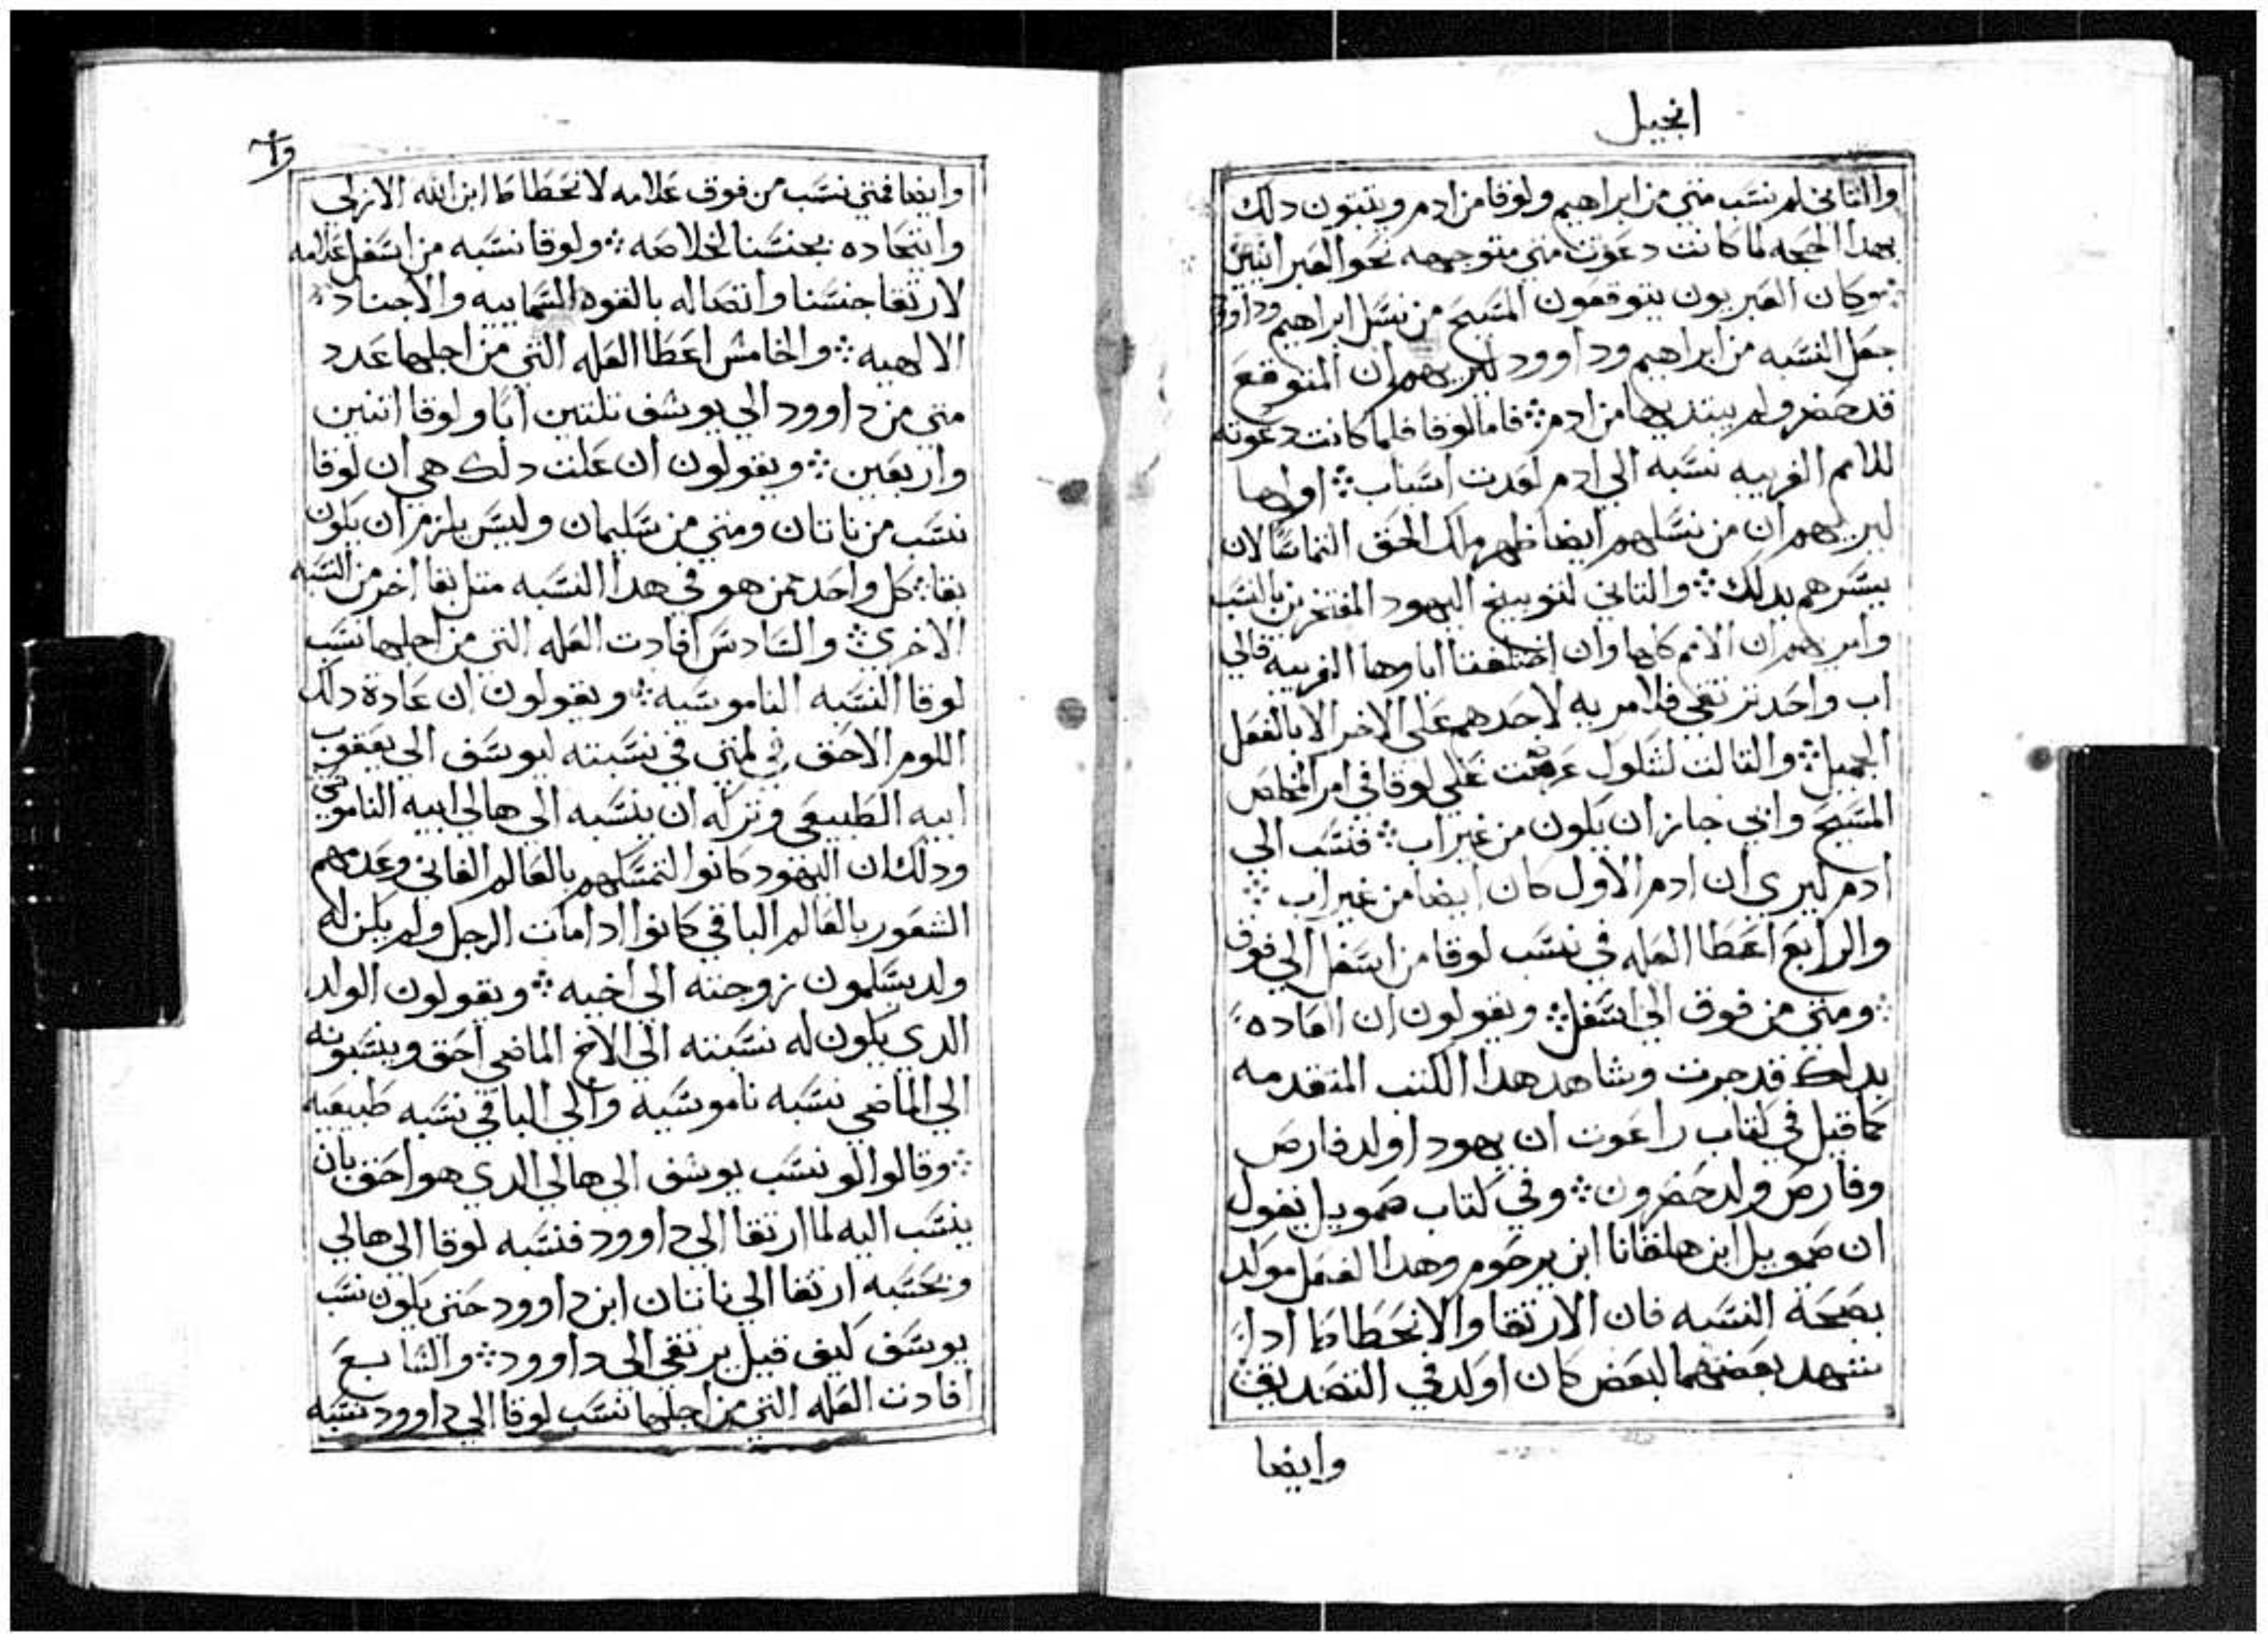 انجيل
والثاني لم نسب متي من ابراهيم ولوقا من ادم ويثبتون دلك
بهدا الحجه لما كانت دعوت متي متوجهه نحو العبرانيين
وكان العبريون يتوقعون المسيح من نسل ابراهيم وداوود
جعل النسبه من ابراهيم وداوود ليريهم ان المتوقع
قد حضر ولم يبتديها من ادم فاما لوقا فلما كانت دعوته
للامم الغريبه نسبه الي ادم لعدت اسباب اولها
ليريهم ان من نسلهم ايضا ظهر ملك الحق التماسا لان
يبسرهم بدلك والتاني لتوبيخ اليهود المفتخرين بالنسب
وليريهم ان الامم كلها وان اختلفتا اباوها الغريبه فالي
اب واحد ترتقي فلا مريه لاحدهم علي الاخر الا بالفعل
الجميل والتالت لشلوك عرضت علي لوقا في امر المخلص
المسيح واني جاز ان يكون من غير اب فنسب الي
ادم ليري ان ادم الاول كان ايضا من غير اب
والرابع اعطا العله في نسب لوقا من اسفل الي فوق
ومتي من فوق الي اسفل ويقولون ان العاده
بدلك قد جرت وشاهد هدا الكتب المتقدمه
كما قيل في كتاب راعوت ان يهودا ولد فارص
وفارص ولد حضرون وفي كتاب صمويل يقول
ان صمويل ابن هلقانا ابن يرحوم وهدا الفعل مولد
بصحة النسبه فان الارتقا والانحطاط ادا
شهد بعضهما لبعض كان اولد في التصديق
وايضا
وايضا فمتي نسب من فوق علامه لانحطاط ابن الله الازلي
واتحاده بجنسنا لخلاصه ولوقا نسبه من اسفل علامه
لارتقا جنسنا واتصاله بالقوه السماييه والاجناد
الالهيه والخامس اعطا العله التي من اجلها عدد
متي من داوود الي يوسف تلتين ابا ولوقا اتنين
واربعين ويقولون ان علت دلك هي ان لوقا
نسب من ناتان ومتي من سليمان وليس يلزم ان يكون
بقا كل واحد ممن هو في هدا النسبه متل بقا اخر من النسبه
الاخري والسادس افادت العله التي من اجلها نسب
لوقا النسبه الناموسيه ويقولون ان عادة دلك
اللوم الاحق في لمتي في نسبته ليوسف الي يعقوب
ابيه الطبيعي وتركه ان ينسبه الي هالي ابيه الناموسي
ودلك ان اليهود كانوا لتمسكهم بالعالم الفاني وعدمهم
الشعور بالعالم الباقي كانوا ادا مات الرجل ولم يكن له
ولد يسلمون زوجته الي اخيه ويقولون الولد
الدي يكون له نسبته الي الاخ الماضي احق وينسبونه
الي الماضي نسبه ناموسيه والي الباقي نسبه طبيعيه
وقالوا لو نسب يوسف الي هالي الدي هو احق بان
ينسب اليه لما ارتقا الي داوود فنسبه لوقا الي هالي
وبحسبه ارتقا الي ناتان ابن داوود حتي يكون نسب
يوسف كيف قيل يرتقي الي داوود والسابع
افادت العله التي من اجلها نسب لوقا الي داوود نسبه